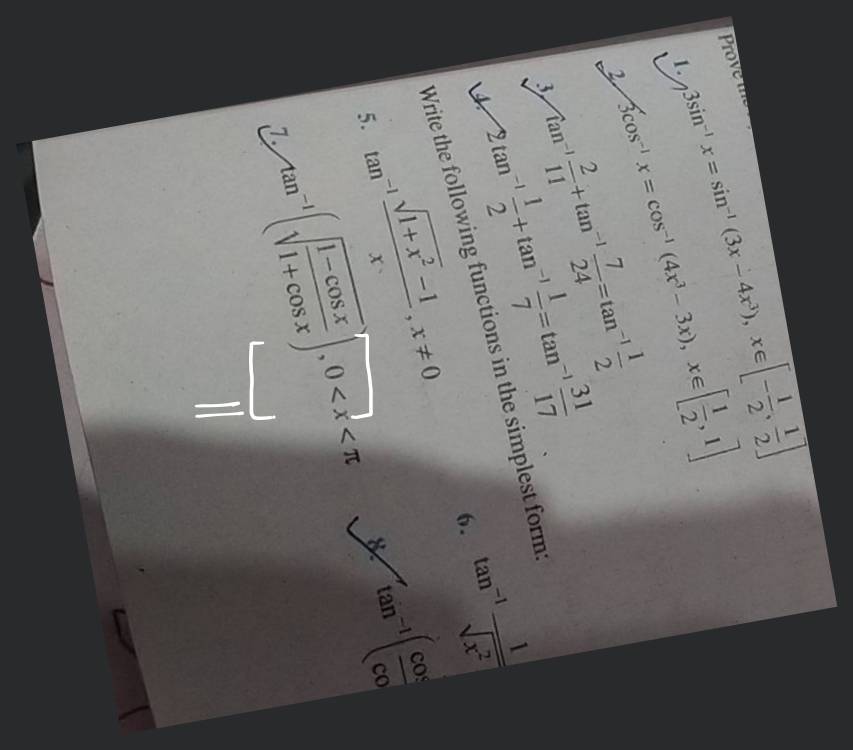 Prove
1. 3sin⁻¹ x = sin⁻¹ (3x – 4x³), x ∈ [–1/2, 1/2]
2. 3cos⁻¹ x = cos⁻¹ (4x³ – 3x), x ∈ [1/2, 1]
3. tan⁻¹ 2/11 + tan⁻¹ 7/24 = tan⁻¹ 1/2
4. 2 tan⁻¹ 1/2 + tan⁻¹ 1/7 = tan⁻¹ 31/17
Write the following functions in the simplest form:
5. tan⁻¹ (√(1+x²) –1)/x, x ≠ 0
6. tan⁻¹ 1/√x²
7. tan⁻¹ (√((1–cos x)/(1+cos x))), 0 < x < π
8. tan⁻¹ (